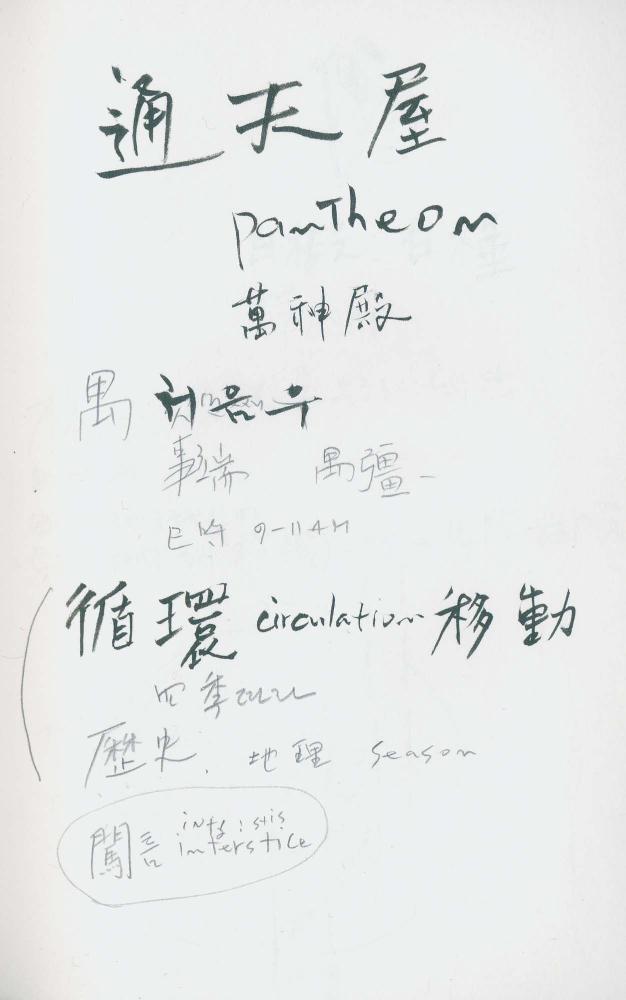 通天屋
pantheon
萬神殿
禺 처음 우
事端 禺彊
巳時 9-11AM
循環 circulation 移動
四季
歷史. 地理 season
闖 intɚ:stis
interstice